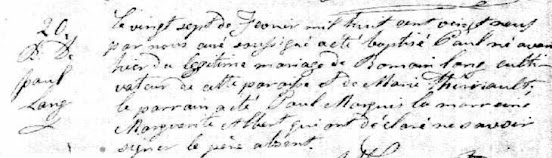 20.
B. De
Paul
Lang
Le vingt sept de Fevrier mil huit cent vingt neuf
par nous curé soussigné a été baptisé Paul né avant
hier du légitime mariage de Romain Lang culti
vateur de cette paroisse & de Marie Theriault,
le parrain a été Paul Marquis la marraine
Marguerite Albert qui ont déclaré ne savoir
signer le père absent.